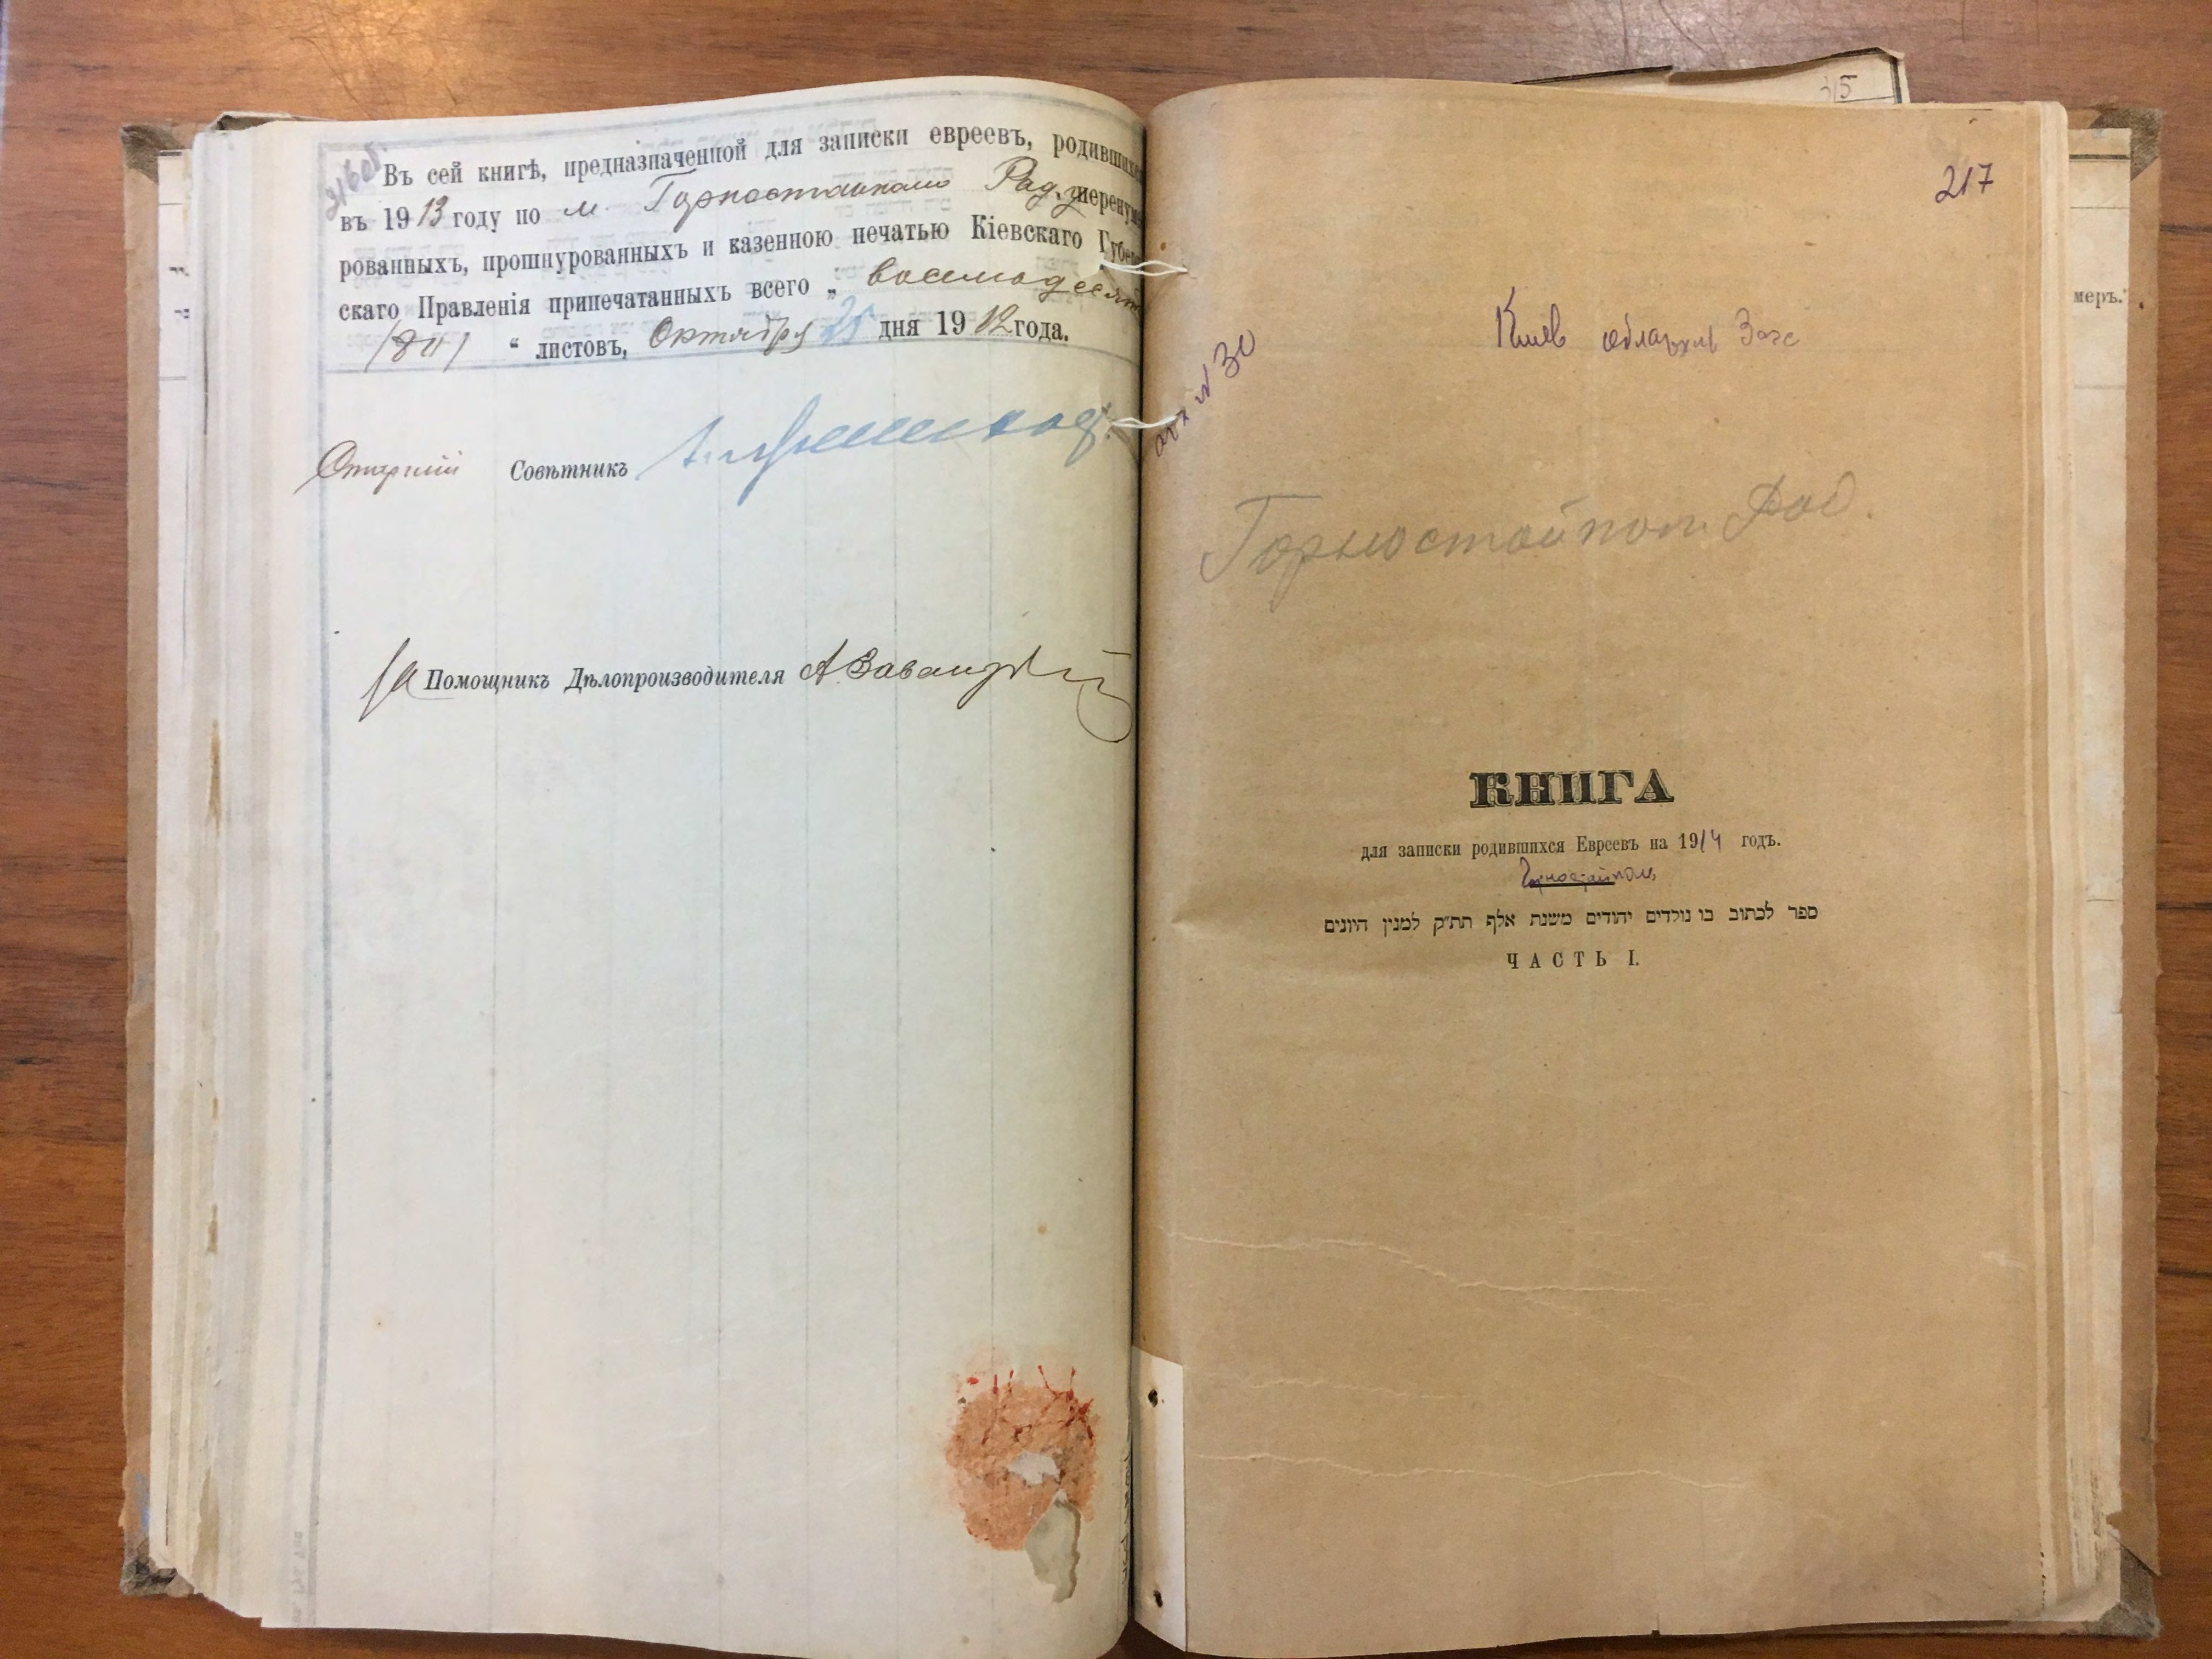 216об.
Въ сей книгѣ, предназначенной для записки евреевъ, родившихся
въ 1913 году по м. Горностайполю Рад. у. перенуме
рованныхъ, прошнурованныхъ и казенною печатью Кіевскаго Губерн
скаго Правленія припечатанныхъ всего „ восемьдесят
/80/ “ листовъ, Октября 25 дня 1912 года.
Старшій Совѣтникъ
Помощникъ Дѣлопроизводителя А
217
Киев облархив Загс
арх № 30
Горностайполь Рад.
КНИГА
для записки родившихся Евреевъ на 1914 годъ.
Горностайполь
ספר לכתוב בו נולדים יהודים משנת אלף תת״ק למנין היונים
ЧАСТЬ I.
35
меръ.